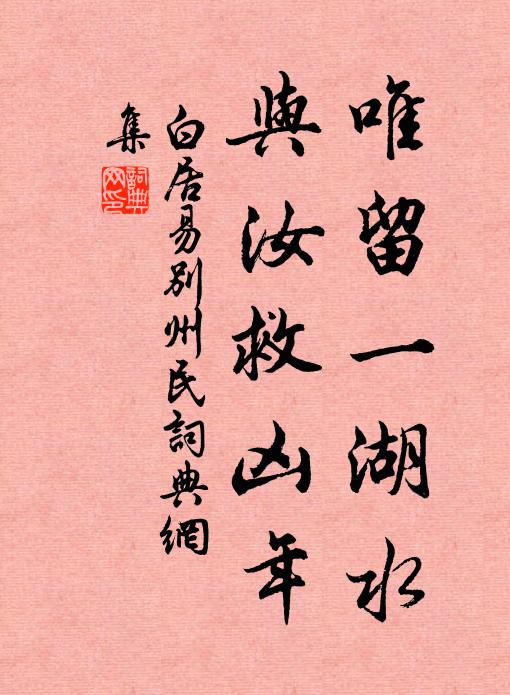 唯留一湖水
與汝救凶年
白居易別州民詞典網
集
詞典网印